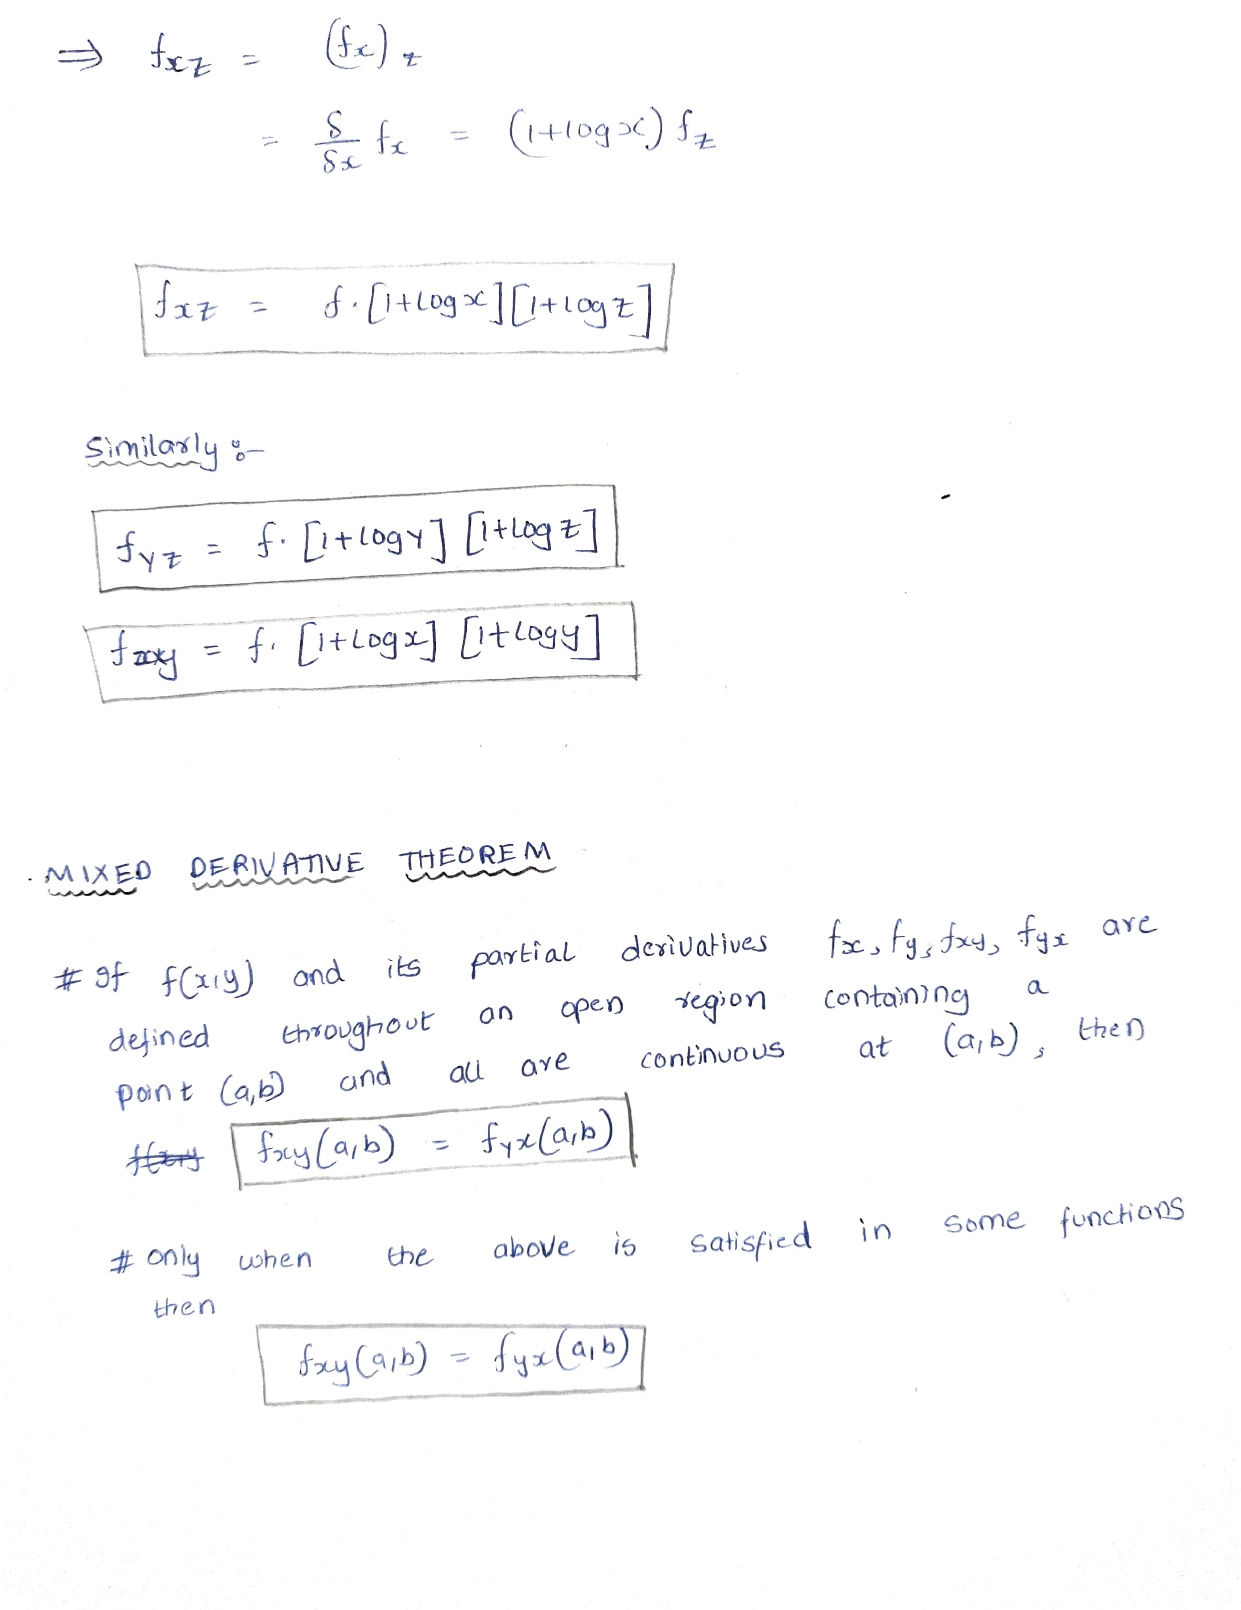 ⇒ fxz = (fx)z
= δ/δx fx = (1+logx) fz
fxz = f.[1+logx][1+logz]
Similarly :-
fyz = f. [1+logy] [1+logz]
fxy = f. [1+logx] [1+logy]
. MIXED DERIVATIVE THEOREM
# If f(x,y) and its partial derivatives fx, fy, fxy, fyx are
defined throughout an open region containing a
point (a,b) and all are continuous at (a,b), then
fxy(a,b) = fyx(a,b)
# only when the above is satisfied in some functions
then
fxy(a,b) = fyx(a,b)